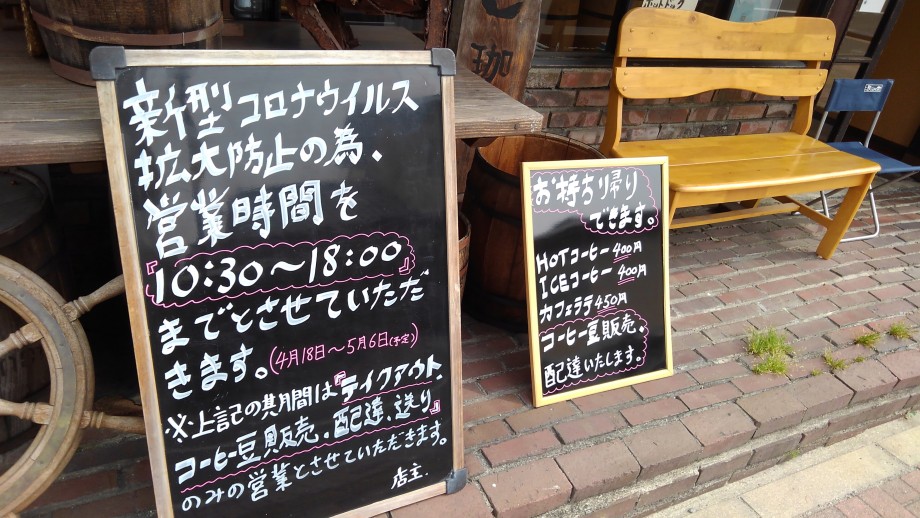 新型コロナウイルス
拡大防止の為、
営業時間を
『10:30〜18:00』
までとさせていただ
きます。(4月18日〜5月6日(予定))
※上記の期間は『テイクアウト、
コーヒー豆販売、配達、送り』
のみの営業とさせていただきます。
店主.
珈
お持ち帰り
できます。
HOTコーヒー 400円
ICEコーヒー 400円
カフェラテ 450円
コーヒー豆販売、
配達いたします。